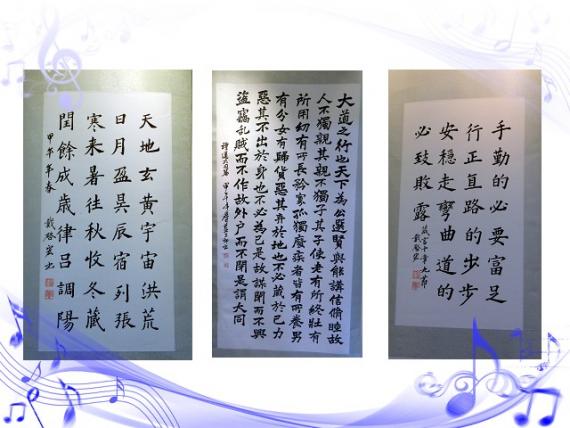 天地玄黃宇宙洪荒
日月盈昃辰宿列張
寒来暑往秋收冬藏
閏餘成歳律呂調陽
甲午年春
大道之行也天下為公選賢與能講信脩睦故
人不獨親其親不獨子其子使老有所終壯有
所用幼有所長矜寡孤獨廢疾者皆有所養男
有分女有歸貨惡其弃於地也不必藏於己力
惡其不出於身也不必為己是故謀閉而不興
盜竊乱賊而不作故外户而不閉是謂大同
禮運大同篇
手勤的必要富足
行正直路的步步
安穩走彎曲道的
必致敗露
箴言十章九節